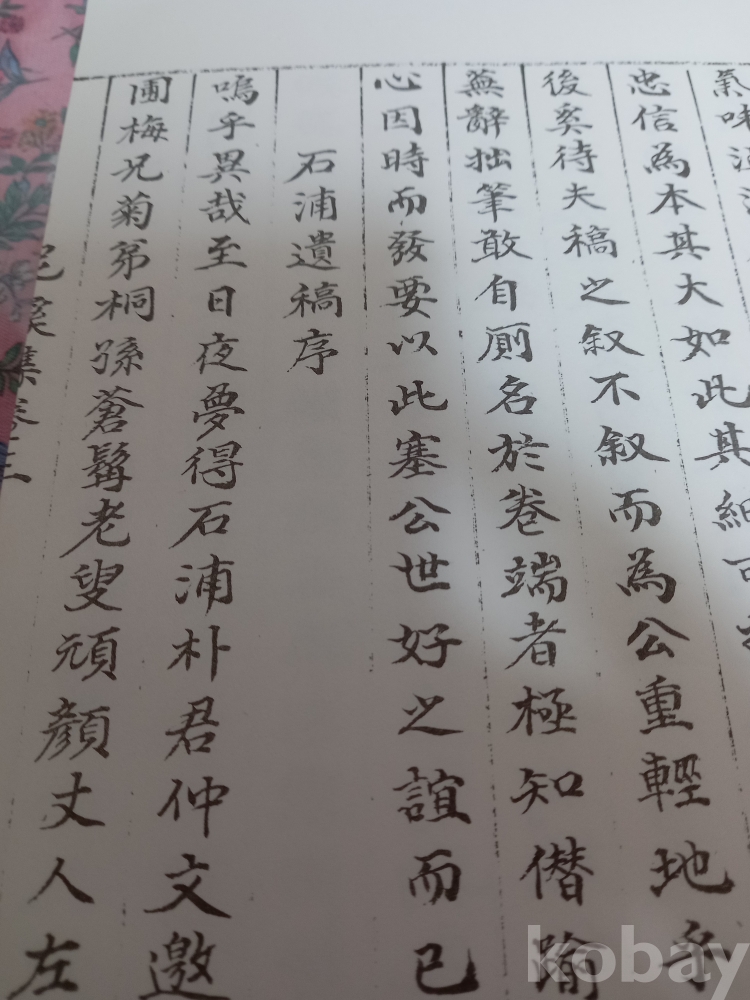 氣味
忠信為本其大如此其細可
後奚待夫稿之叙不叙而為公重輕地乎
蕪辭拙筆敢自厠名於卷端者極知僭踰
心因時而發要以此塞公世好之誼而已
石浦遺稿序
嗚乎異哉至日夜夢得石浦朴君仲文邀
圃梅兄菊弟桐孫蒼髯老叟頑顔丈人左
集卷三
kobay